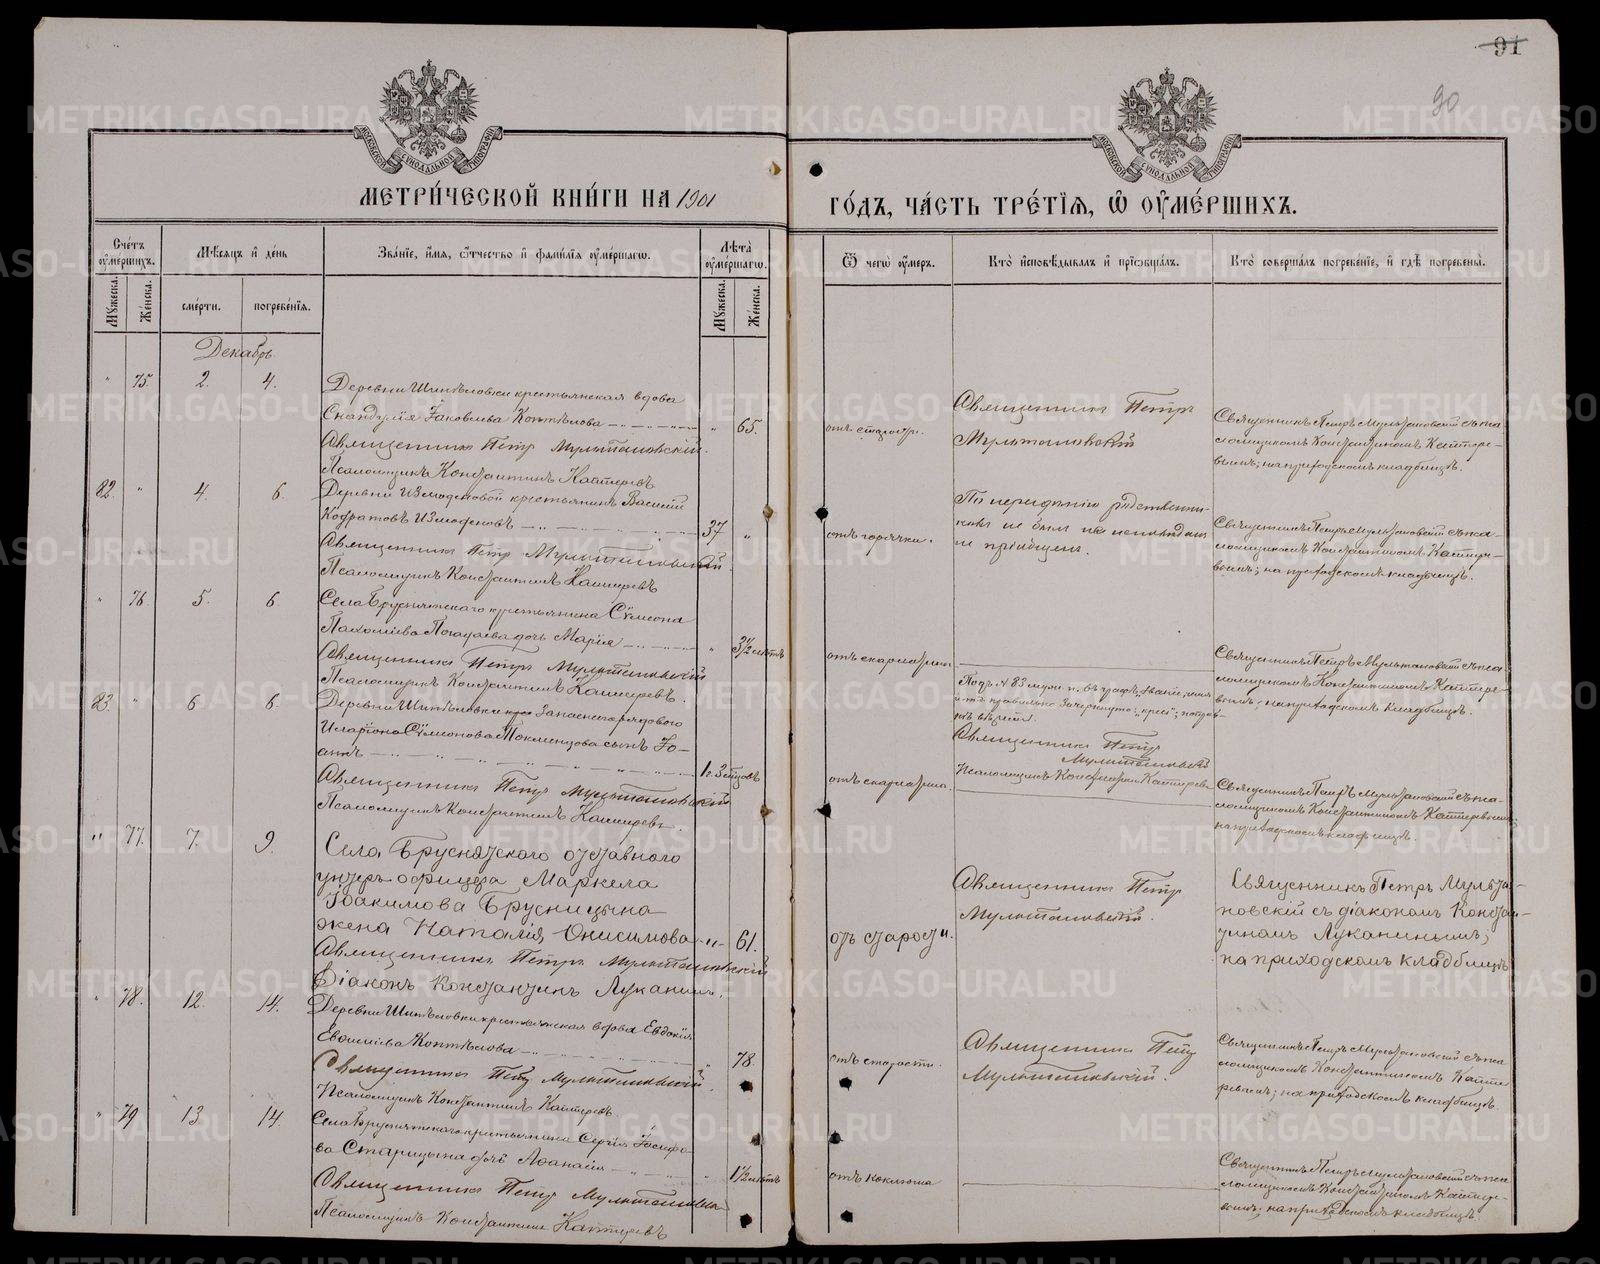 91
90
МЕТРИ́ЧЕСКОЙ КНИ́ГИ НА 1901
ГО́ДЪ, ЧА́СТЬ ТРЕ́ТІѦ, Ѡ҆ ОУ҆МЕ́РШИХЪ.
Сче́тъ оу҆ме́ршихъ.
Мѣ́сяцъ и҆ де́нь
Зва́нїе, и҆́мя, ѻ҆́тчество и҆ фами́лїя оу҆ме́ршагѡ.
Лѣта̀ оу҆ме́ршагѡ.
Ѿ чегѡ̀ оу҆́меръ.
Кто̀ и҆сповѣ́дывалъ и҆ прїѡбща́лъ.
Кто̀ соверша́лъ погребе́нїе, и҆ гдѣ̀ погребены̀.
Мꙋ́жеска.
Же́нска.
сме́рти.
погребе́нїя.
Мꙋ́жеска.
Же́нска.
Декабрь
" 75. 2. 4.
Деревни Шипѣловки крестьянская вдова
Іаковлева Коптѣлова " 65.
Священникъ Петръ Мультановскій.
Псаломщикъ Константинъ
отъ старости.
Священникъ Петръ
Мультановскій
Священникъ Петръ Мультановскій съ пса-
ломщикомъ Константиномъ
вымъ; на приходскомъ кладбищѣ.
82. " 4. 6.
Деревни Измоденовой крестьянинъ Василій
Измоденовъ 37 "
Священникъ Петръ Мультановскій.
Псаломщикъ Константинъ
отъ горячки.
По нерадѣнію родственни-
ковъ не былъ исповѣданъ
не пріобщенъ.
Священникъ Петръ Мультановскій съ пса-
ломщикомъ Константиномъ
вымъ; на приходскомъ кладбищѣ.
" 76 5. 6.
Села Бруснятскаго крестьянина Сѵмеона
Пахоміева дочь Марія " 3½ лѣтъ
Священникъ Петръ Мультановскій
Псаломщикъ Константинъ
отъ скарлатины
Священникъ Петръ Мультановскій съ пса-
ломщикомъ Константиномъ
вымъ; на приходскомъ кладбищѣ.
83 " 6 6.
Деревни Шипѣловки запаснаго рядового
Иларіона Сѵмеонова сынъ Іо-
аннъ 1 г. 3 мѣсяцъ
Священникъ Петръ Мультановскій
Псаломщикъ Константинъ
отъ скарлатина.
Подъ № 83 муж. п. въ графѣ „званіе, имя
и т.д. правильно зачеркнуто: „крес";
вѣрить.
Священникъ Петръ
Мультановскій
Псаломщикъ Константинъ
Священникъ Петръ Мультановскій съ пса-
ломщикомъ Константиномъ
на приходскомъ кладбищѣ.
" 77. 7. 9.
Села Бруснятского отставного
унтеръ офицера Маркела
Іоакимова Брусницына
жена Наталія Онисимова " 61.
Священникъ Петръ Мультановскій
Діаконъ Константинъ Луканинъ.
отъ старости.
Священникъ Петръ
Мультановскій.
Священникъ Петръ Мульта-
новскій съ діакономъ Констан-
тиномъ Луканинымъ;
на приходскомъ кладбищѣ
" 78. 12. 14.
Деревни Шипѣловки крестьянская вдова Евдокія
Коптѣлова " 78.
Священникъ Петръ Мультановскій.
Псаломщикъ Константинъ
отъ старости.
Священникъ Петръ
Мультановскій.
Священникъ Петръ Мультановскій съ пса-
ломщикомъ Константиномъ
на приходскомъ кладбищѣ.
" 79 13 14.
Села Бруснятскаго крестьянина Сергія Іосифо-
ва Старицына дочь Аѳанасія " 1½ лѣтъ
Священникъ Петръ Мультановскій
Псаломщикъ Константинъ
отъ коклюша
Священникъ Петръ Мультановскій съ пса-
ломщикомъ Константиномъ
вымъ; на приходскомъ кладбищѣ.
METRIKI.GASO-URAL.RU